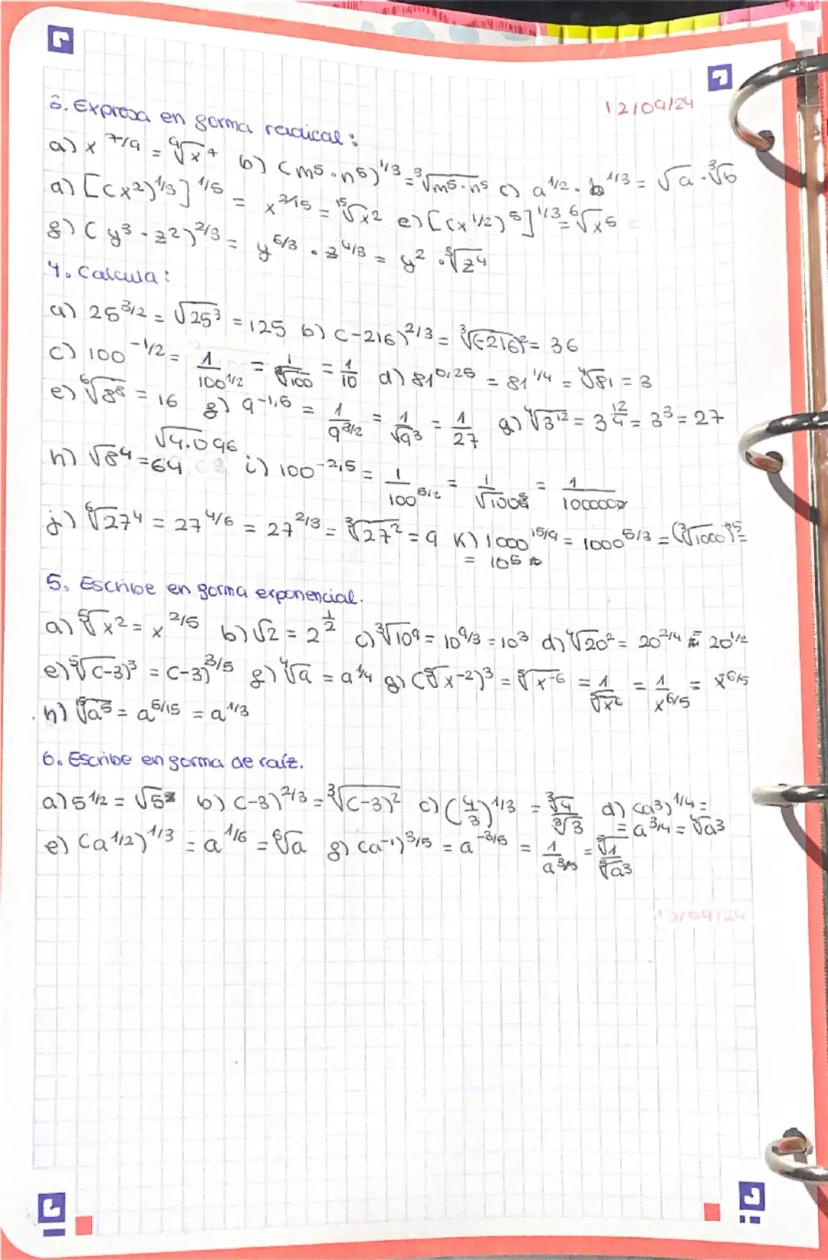 12/09/24
3. Expresa en forma radical:
a) x^7/9 = ⁹√x⁷ b) (m⁵·n⁵)^1/3 = ³√m⁵·n⁵ c) a^1/2 · b^1/3 = √a · ³√b
d) [(x²)^1/3]^1/5 = x^2/15 = ¹⁵√x² e) [(x^1/2)⁵]^1/3 = ⁶√x⁵
f) (y³·z²)^2/3 = y^6/3 · z^4/3 = y² · ³√z⁴
4. Calcula:
a) 25^3/2 = √25³ = 125 b) (-216)^2/3 = ³√(-216)² = 36
c) 100^-1/2 = 1/100^1/2 = 1/√100 = 1/10 d) 81^0,25 = 81^1/4 = ⁴√81 = 3
e) ⁶√8⁸ = 16 f) 9^-1,5 = 1/9^3/2 = 1/√9³ = 1/27 g) ⁴√3¹² = 3^12/4 = 3³ = 27
√4.096
h) √8⁴ = 64 i) 100^-2,5 = 1/100^5/2 = 1/√100⁵ = 1/100000
j) ⁶√27⁴ = 27^4/6 = 27^2/3 = ³√27² = 9 k) 1000^15/9 = 1000^5/3 = (³√1000)⁵ =
= 10⁵
5. Escribe en forma exponencial.
a) ⁵√x² = x^2/5 b) √2 = 2^1/2 c) ³√10⁹ = 10^9/3 = 10³ d) ⁴√20² = 20^2/4 = 20^1/2
e) ⁵√(-3)³ = (-3)^3/5 f) ⁴√a = a^1/4 g) (⁵√x⁻²)³ = ⁵√x⁻⁶ = 1/⁵√x⁶ = 1/x^6/5 = x^-6/5
h) ¹⁵√a⁵ = a^5/15 = a^1/3
6. Escribe en forma de raíz.
a) 5^1/2 = √5 b) (-3)^2/3 = ³√(-3)² c) (4/3)^1/3 = ³√4/³√3 d) (a³)^1/4 =
= a^3/4 = ⁴√a³
e) (a^1/2)^1/3 = a^1/6 = ⁶√a f) (a⁻¹)^3/5 = a^-3/5 = 1/a^3/5 = ⁵√1/⁵√a³
13/09/24